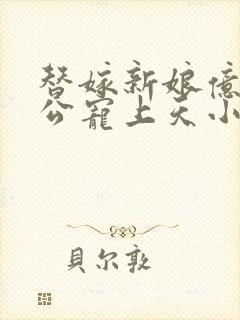 替嫁新娘億
公寵上天小
貝尔敦